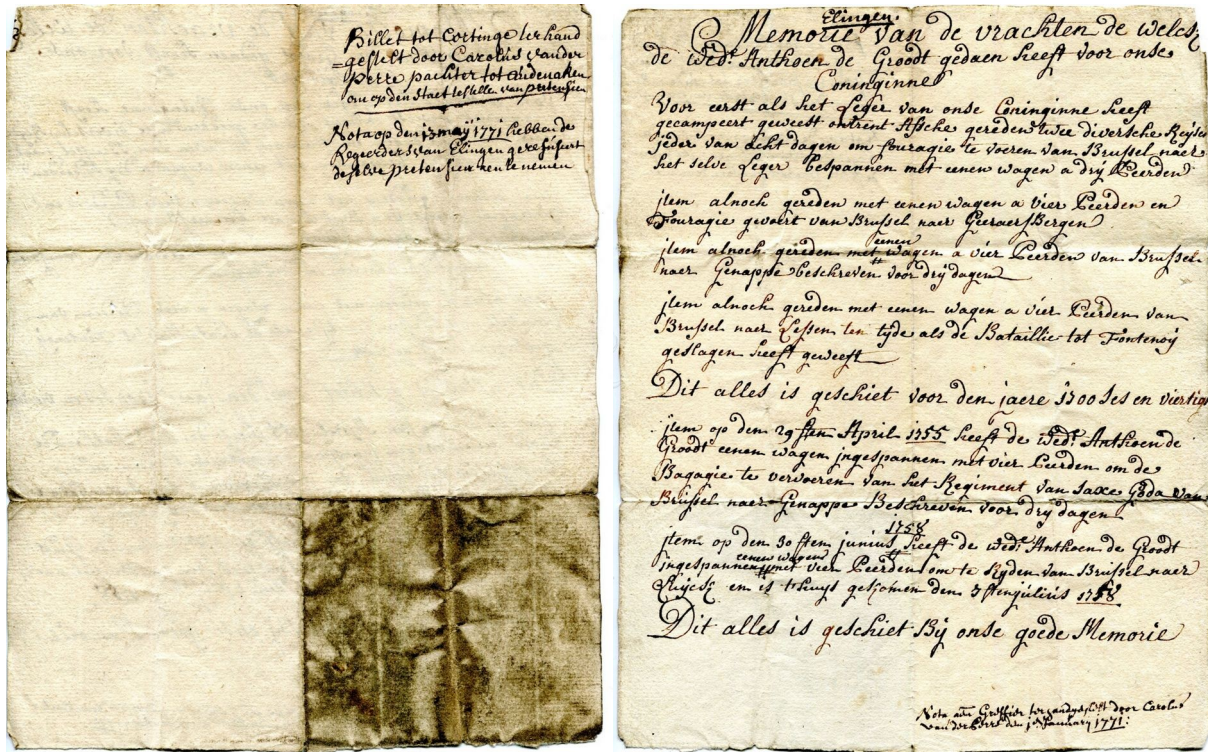 Billet tot Cortinge ter hand
gestelt door Carolus vander
Perre pachter tot Audenaken
om op den Staet te stellen van pretensien
Nota op den 13 may 1771 hebben de
Regeerders van Elingen gerefuseert
deselve pretensien aen te nemen
Elingen.
Memorie van de vrachten de welcke
de Wed.e Anthoen de Groodt gedaen heeft voor onse
Coninginne
Voor eerst als het Leger van onse Coninginne heeft
gecampeert geweest ontrent Assche gereden twee diversche Reysen
jeder van acht dagen om fouragie te voeren van Brussel naer
het selve Leger bespannen met eenen wagen a dry Peerden
jtem alnoch gereden met eenen wagen a vier Peerden en
Fouragie gevoert van Brussel naer Geeraersbergen
jtem alnoch gereden met eenen wagen a vier Peerden van Brussel
naer Genappe beschreven voor dry dagen
jtem alnoch gereden met eenen wagen a vier Peerden van
Brussel naer Lessen ten tyde als de Bataillie tot Fontenoÿ
geslagen heeft geweest
Dit alles is geschiet voor den jaere 1700 ses en viertig
jtem op den 29 sten April 1755 heeft de Wed.e Anthoen de
Groodt eenen wagen jngespannen met vier Peerden om de
Bagagie te vervoeren van het Regiment van Saxe Goda van
Brussel naer Genappe Beschreven voor dry dagen
jtem op den 30 sten junius 1758 heeft de Wed.e Anthoen de Groodt
jngespannen eenen wagen met vier Peerden om te Ryden van Brussel naer
en is t'huys gekomen den julius 1758
Dit alles is geschiet Bÿ onse goede Memorie
Nota aen Greffier ter handgestelt door Carolus
vander Perre den january 1771: